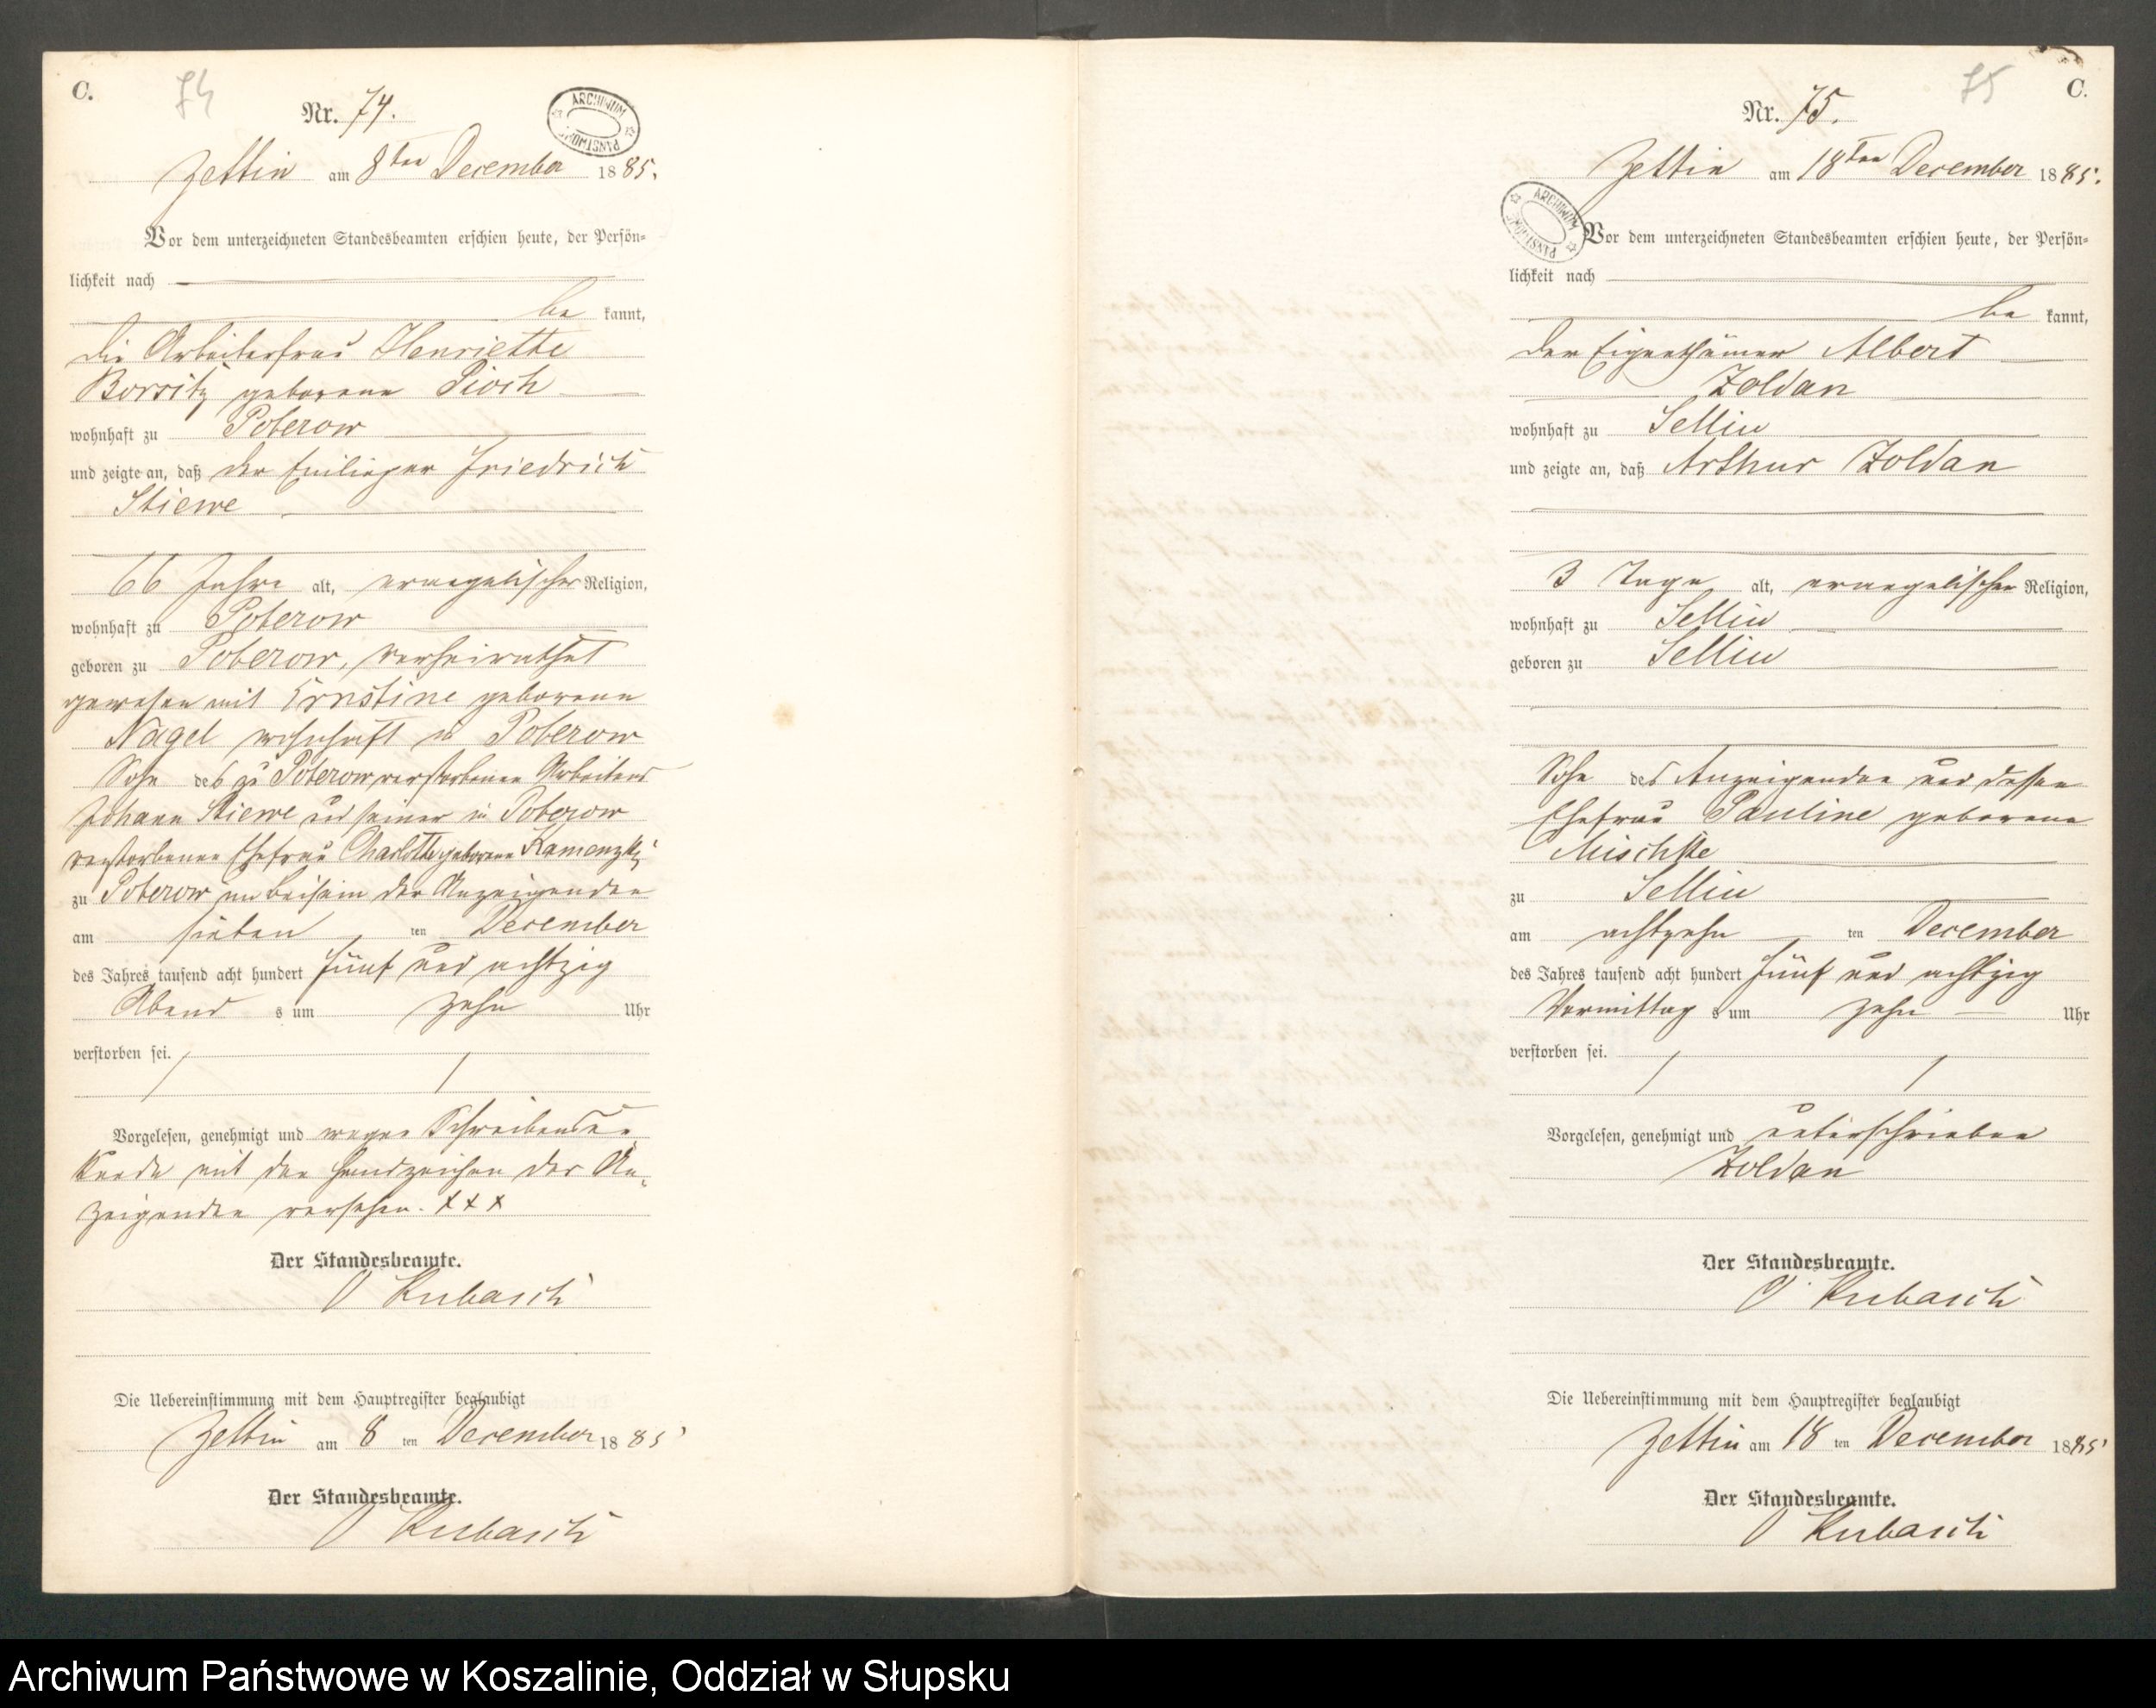 C.
74
Nr. 74.
ARCHIWUM PAŃSTWOWE
Zettin am 8ten December 1885.
Vor dem unterzeichneten Standesbeamten erschien heute, der Persön=
lichkeit nach
be kannt,
die Arbeiterfrau Henriette
Borritz geborene Pioch
wohnhaft zu Poberow
und zeigte an, daß der Einlieger Friedrich
Stiewe
66 Jahre alt, evangelischer Religion,
wohnhaft zu Poberow
geboren zu Poberow, verheirathet
gewesen mit Ernstine geborene
Nagel wohnhaft in Poberow
Sohn des zu Poberow verstorbenen Arbeiters
Johann Stiewe und seiner in Poberow
verstorbenen Ehefrau Charlotte geborene Kamenzki
zu Poberow im Beisein der Anzeigenden
am sieben ten December
des Jahres tausend acht hundert fünf und achtzig
Abend s um zehn Uhr
verstorben sei.
Vorgelesen, genehmigt und wegen Schreibensun,
kunde mit den Handzeichen der An,
zeigenden versehen. +++
Der Standesbeamte.
Kubasch
Die Uebereinstimmung mit dem Hauptregister beglaubigt
Zettin am 8 ten December 1885
Der Standesbeamte.
Kubasch
75
C.
Nr. 75.
Zettin am 18ten December 1885.
ARCHIWUM PAŃSTWOWE
Vor dem unterzeichneten Standesbeamten erschien heute, der Persön=
lichkeit nach
be kannt,
der Eigenthümer Albert
Zoldan
wohnhaft zu Sellin
und zeigte an, daß Arthur Zoldan
3 Tage alt, evangelischer Religion,
wohnhaft zu Sellin
geboren zu Sellin
Sohn des Anzeigenden und dessen
Ehefrau Pauline geborene
Mischke
zu Sellin
am achtzehn ten December
des Jahres tausend acht hundert fünf und achtzig
Vormittag s um zehn Uhr
verstorben sei.
Vorgelesen, genehmigt und unterschrieben
Zoldan
Der Standesbeamte.
Kubasch
Die Uebereinstimmung mit dem Hauptregister beglaubigt
Zettin am 18 ten December 1885
Der Standesbeamte.
Kubasch
Archiwum Państwowe w Koszalinie, Oddział w Słupsku